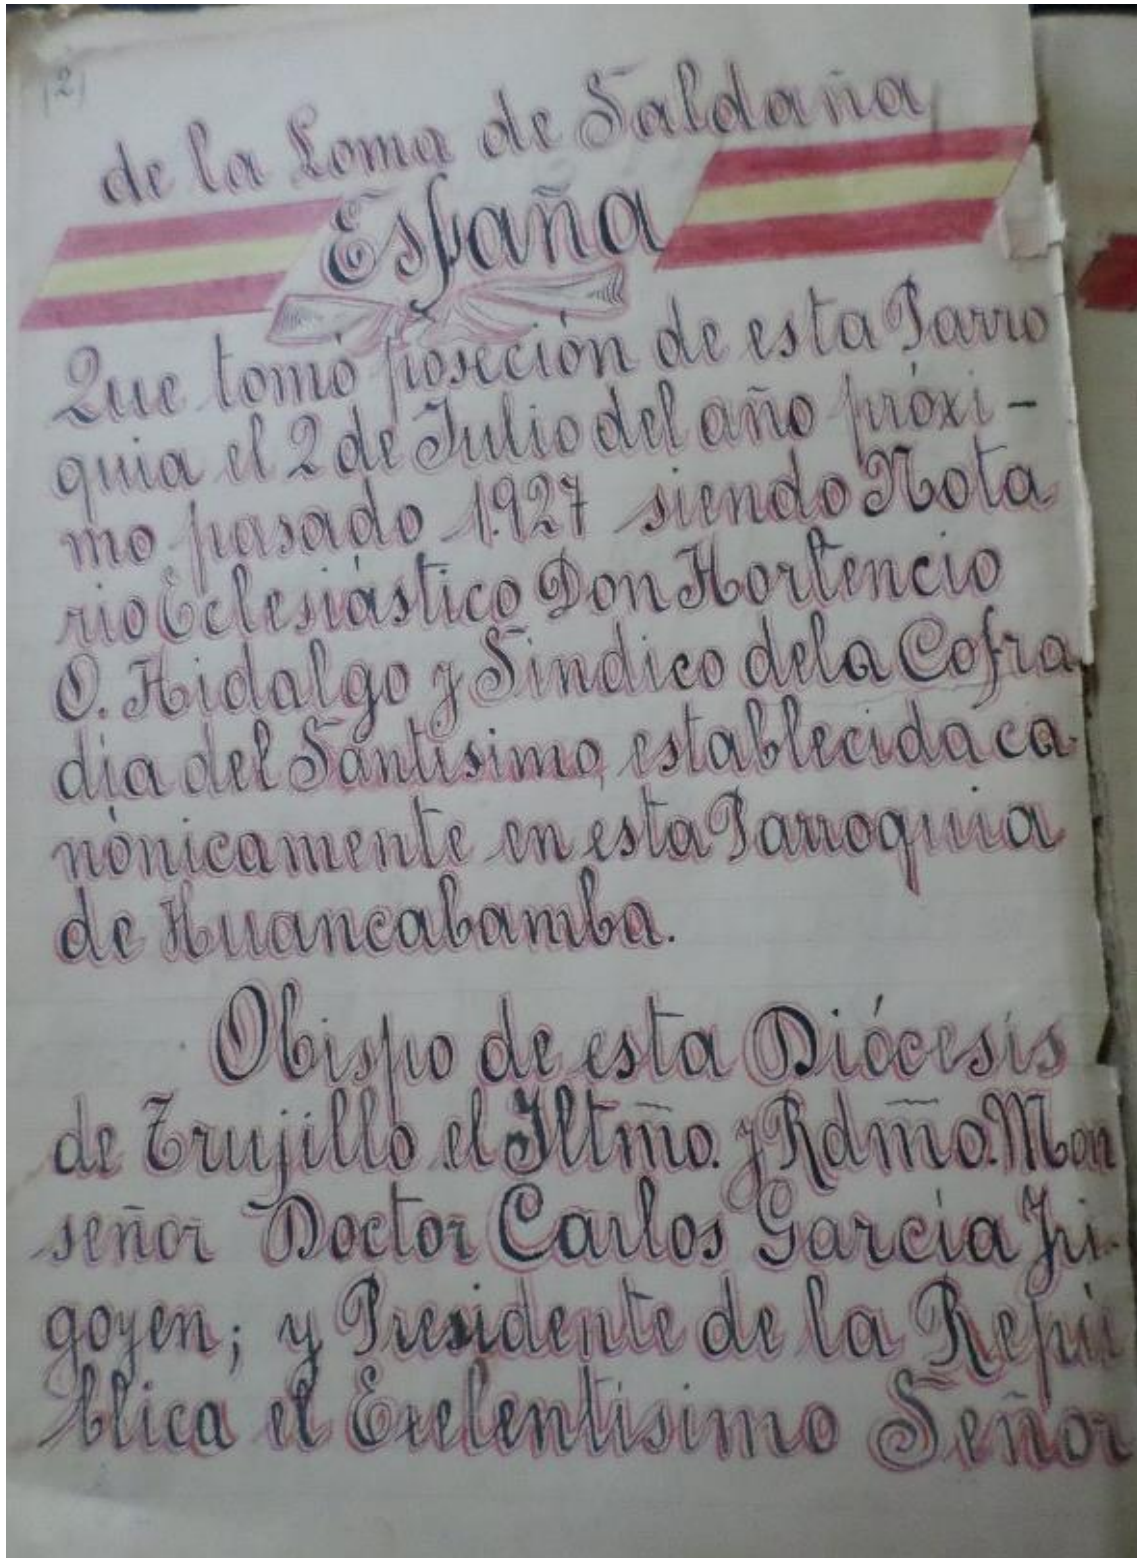 (2)
de la Loma de Saldaña
España
Que tomó poseción de esta Parro
quia el 2 de Julio del año próxi-
mo pasado 1.927 siendo Nota
rio Eclesiástico Don Hortencio
O. Hidalgo y Sindico dela Cofra
dia del Santisimo, establecida ca-
nónicamente en esta Parroquia
de Huancabamba.
Obispo de esta Diócesis
de Trujillo el Iltmõ. y Rdmõ. Mon
señor Doctor Carlos García Iri-
goyen; y Presidente de la Repú
blica el Exelentisimo Señor